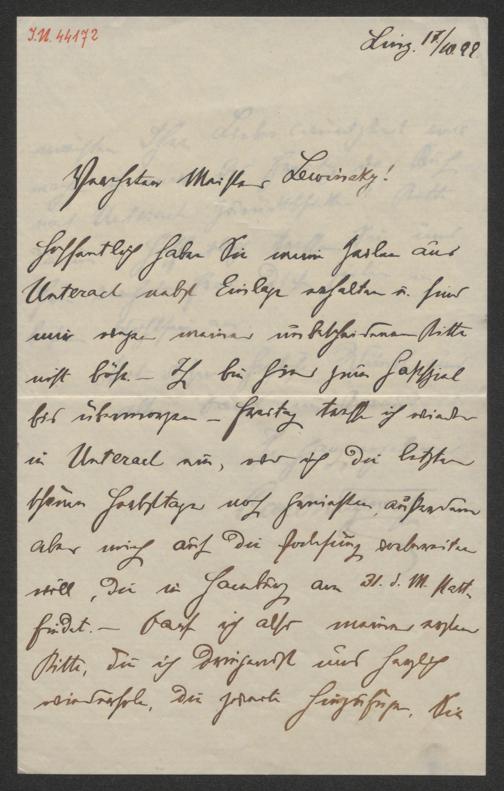 J.N. 44172
Linz. 17/10 99.
Verehrter Meister Lewinsky!
Hoffentlich haben Sie meine Zeilen aus
Unterach nebst Einlage erhalten u. sind
mir wegen meiner unbescheidenen Bitte
nicht böse – Ich bin hier zum Gastspiel
bis übermorgen – Freitag treffe ich wieder
in Unterach ein, wo ich die letzten
schönen Herbsttage noch genießen, außerdem
aber mich auf die Vorlesung vorbereiten
will, die in Hamburg am 31. d. M. statt-
findet. – Darf ich also meiner ersten
Bitte, die ich dringendst und herzlich
wiederhole, die zweite hinzufügen, Sie